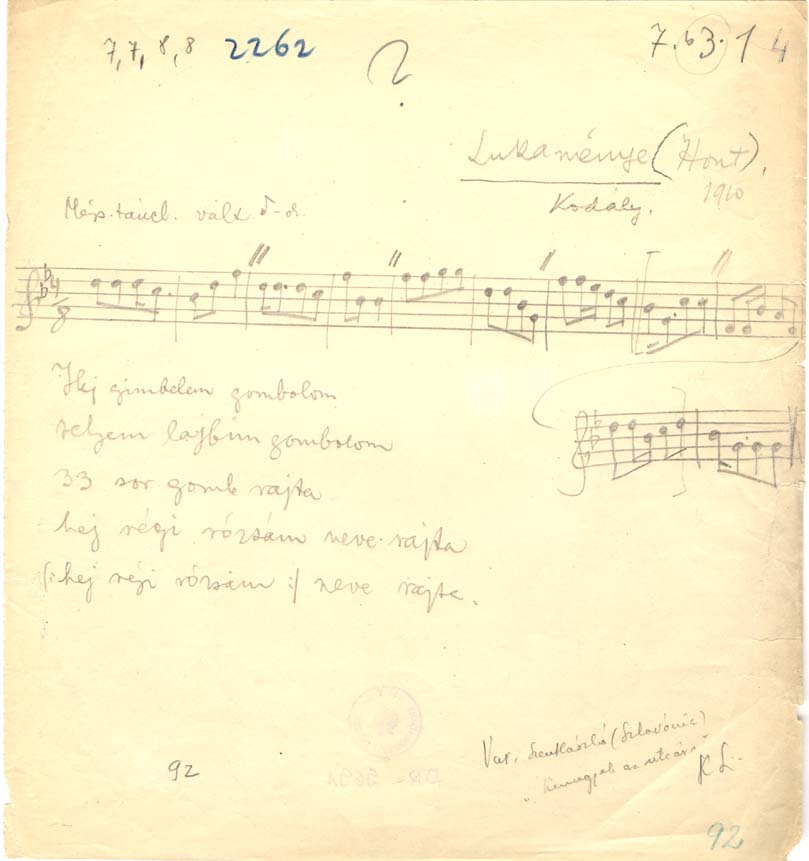 7, 7, 8, 8 2262 ? 7.b3.1 4
Lukanénye (Hont),
1910
Kodály.
4/8
Hej gimbelem gombolom
selyem lajbim gombolom
33 sor gomb rajta
hej régi rózsám neve rajta
(: hej régi rózsám :/ neve rajta.
Var. Szentlászló (Szlavónia)
az utcára"
K L.
92
92